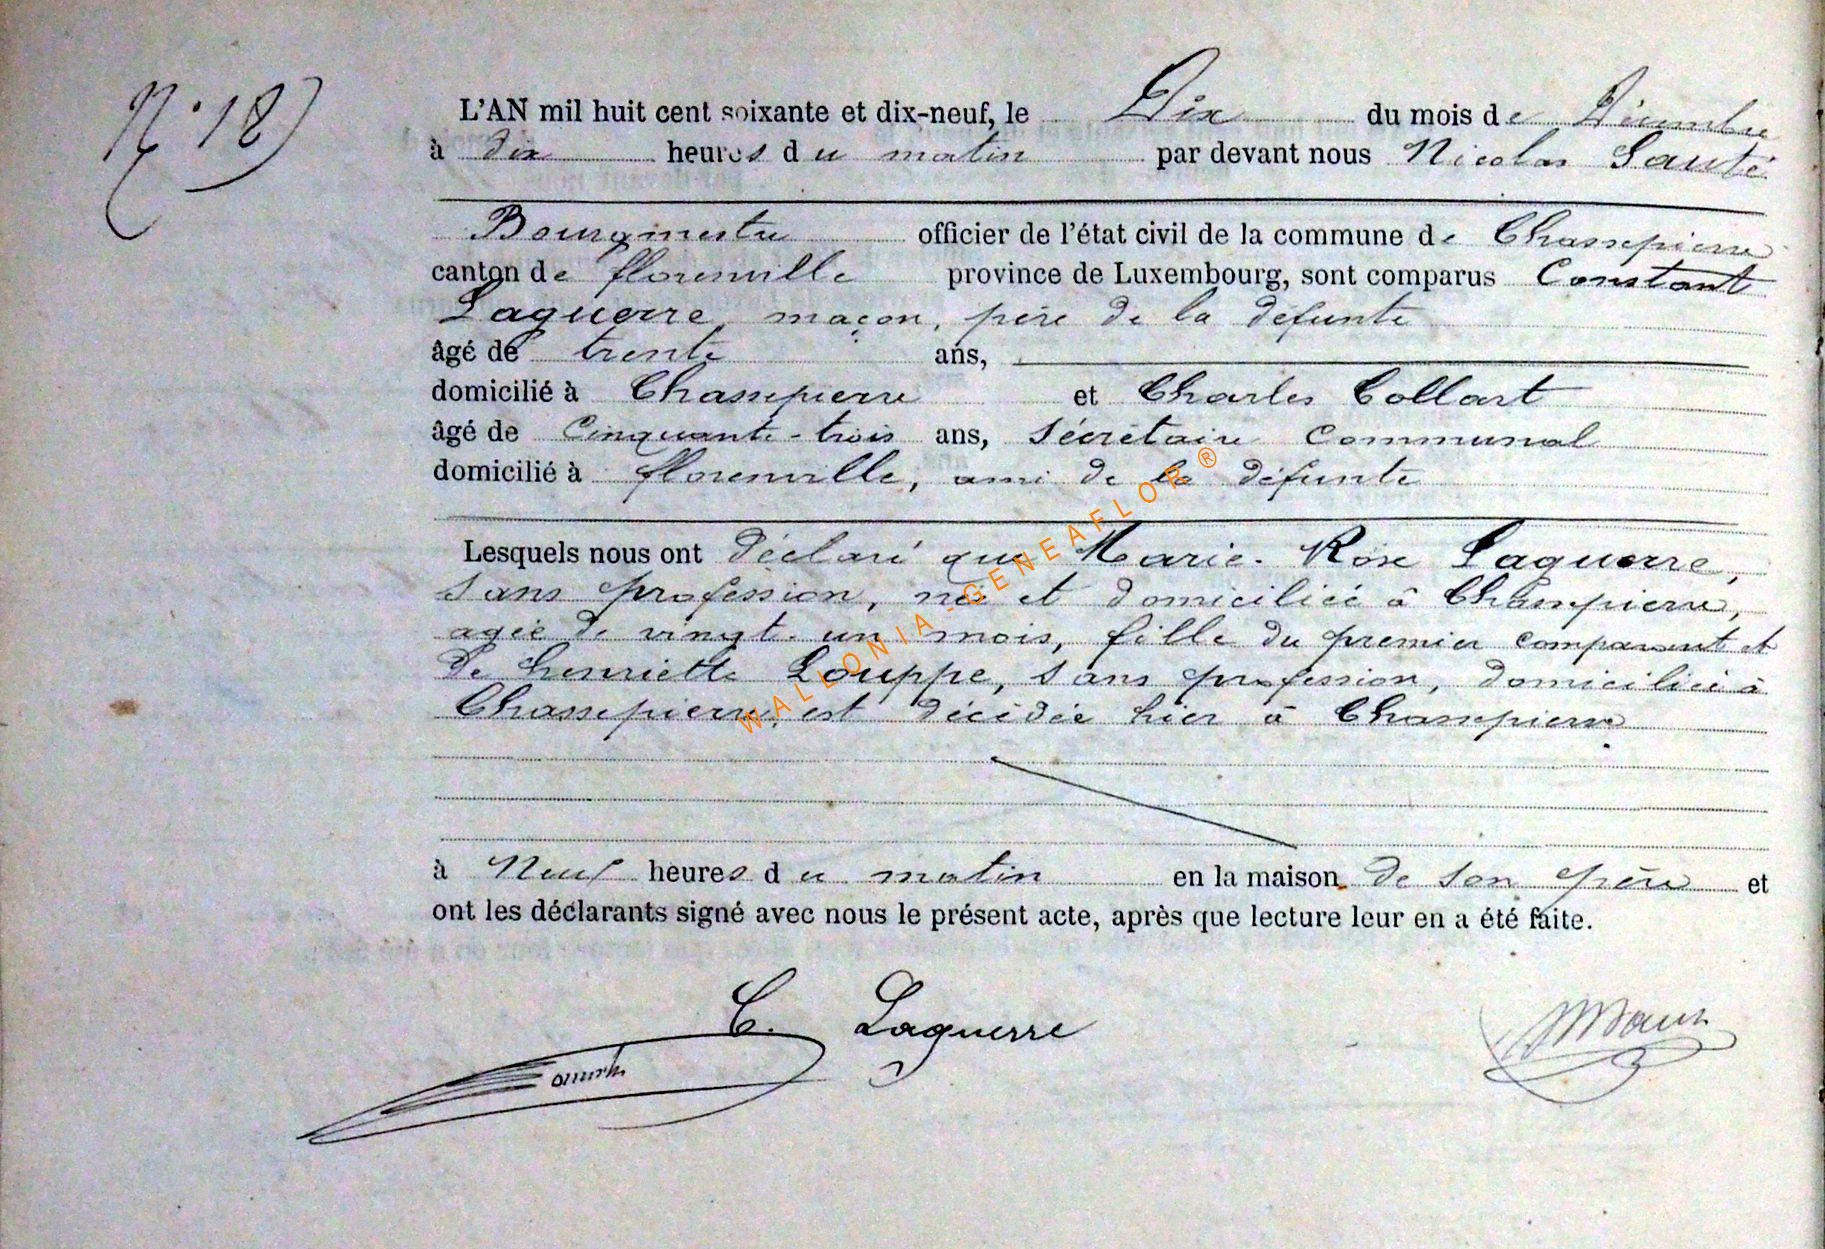 N° 18)
L'AN mil huit cent soixante et dix-neuf, le Dix du mois de Décembre
à dix heures du matin par devant nous Nicolas Sauté
Bourgmestre officier de l'état civil de la commune de Chassepierre
canton de florenville province de Luxembourg, sont comparus Constant
Laguerre maçon, père de la défunte
âgé de trente ans,
domicilié à Chassepierre et Charles Collart
âgé de Cinquante-trois ans, Sécrétaire Communal
domicilié à florenville, ami de la défunte
Lesquels nous ont déclaré que Marie-Rose Laguerre,
sans profession, née et domiciliée à Chassepierre,
agée de vingt-un mois, fille du premier comparant et
de henriette Louppe, sans profession, domiciliée à
Chassepierre, est décédée hier à Chassepierre
à Neuf heures du matin en la maison de son père et
ont les déclarants signé avec nous le présent acte, après que lecture leur en a été faite.
C. Laguerre
WALLONIA-GENEAFLOR ®